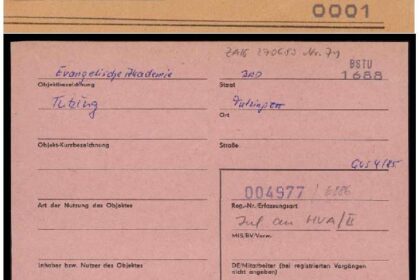 0001
BSTU
1688
Evangelische Akademie
BRD
Objektbezeichnung
Staat
Tutzing
Ort
Objekt-Kurzbezeichnung
Straße
004977 /
Art der Nutzung des Objektes
Reg.-Nr./Erfassungsart
Inf an HVA/II
MfS/BV/Verw.
Inhaber bzw. Nutzer des Objektes
DE/Mitarbeiter (bei registrierten Vorgängen
nicht angeben)